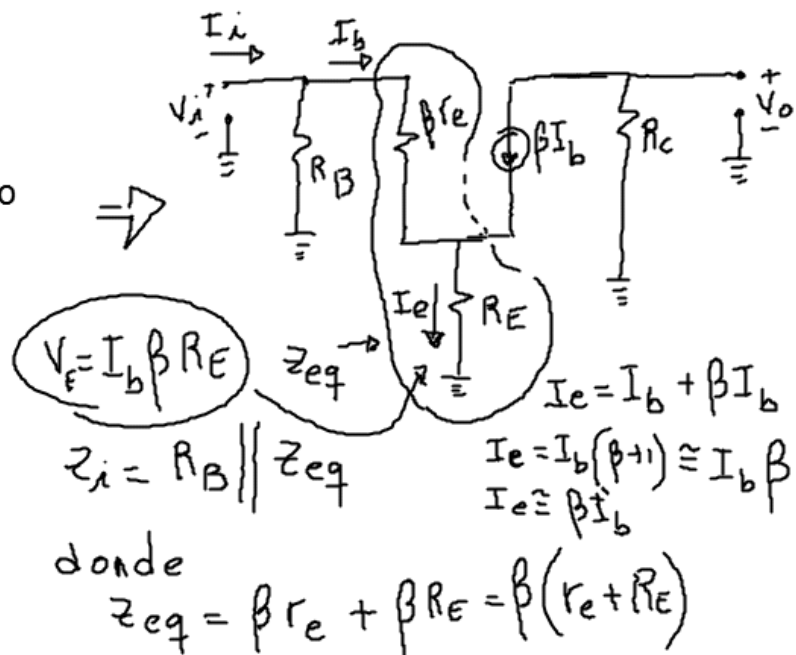 I_i
I_b
V_i + -
R_B
βr_e
βI_b
R_C
V_o + -
o
I_e
R_E
V_E = I_b β R_E
Z_eq
I_e = I_b + βI_b
Z_i = R_B || Z_eq
I_e = I_b(β+1) ≅ I_b β
I_e ≅ βI_b
donde
Z_eq = β r_e + β R_E = β(r_e + R_E)